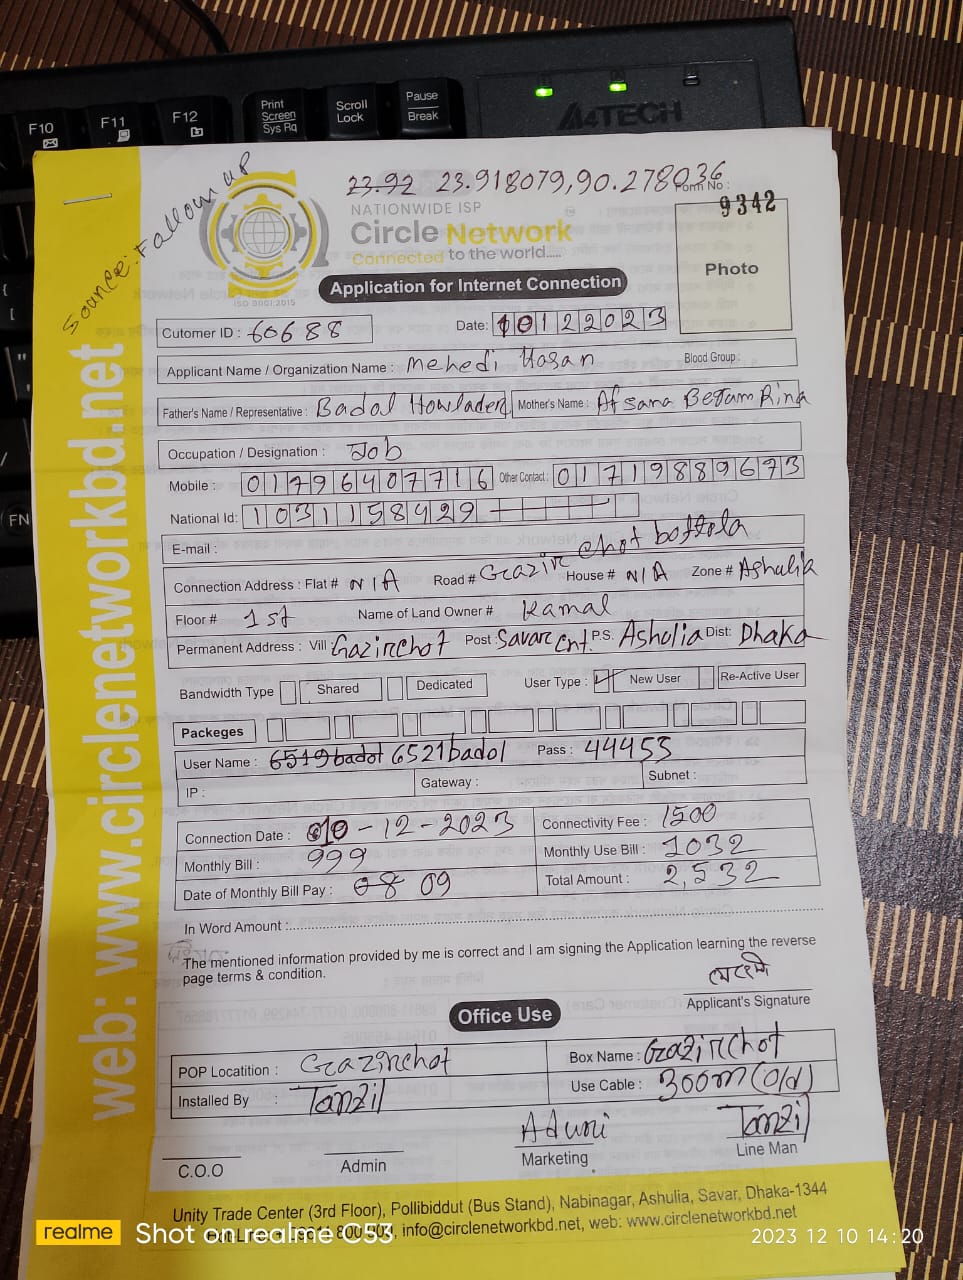 F10 F11 F12 Print Screen Sys Rq Scroll Lock Pause Break
A4TECH
FN
web: www.circlenetworkbd.net
Source: Fallow up
23.92 23.918079,90.278036
Form No :
9342
NATIONWIDE ISP
Circle Network
Connected to the world.....
ISO 9001:2015
Photo
Application for Internet Connection
Cutomer ID : 60688 Date: 10122023
Applicant Name / Organization Name : Mehedi Hasan Blood Group :
Father's Name / Representative : Badal Howlader Mother's Name : Afsana Begam Rina
Occupation / Designation : Job
Mobile : 01796407716 Other Contact : 01719889673
National Id: 1031158429
E-mail :
Connection Address : Flat # N/A Road # Gazir chot bottola House # N/A Zone # Ashulia
Floor # 1st Name of Land Owner # Kamal
Permanent Address : Vill Gazirchot Post : Savar Cnt. P.S. Ashulia Dist: Dhaka
Bandwidth Type Shared Dedicated User Type : New User Re-Active User
Packeges
User Name : 6519badol 6521badol Pass : 44455
IP : Gateway : Subnet :
Connection Date : 10-12-2023 Connectivity Fee : 1500
Monthly Bill : 999 Monthly Use Bill : 1032
Date of Monthly Bill Pay : 08 09 Total Amount : 2,532
In Word Amount :
The mentioned information provided by me is correct and I am signing the Application learning the reverse
page terms & condition.
মেহেদী
Applicant's Signature
Office Use
POP Locatition : Gazirchot Box Name : Gazirchot
Installed By : Tanzil Use Cable : 300m (old)
Tanzil
C.O.O Admin Marketing Line Man
Unity Trade Center (3rd Floor), Pollibiddut (Bus Stand), Nabinagar, Ashulia, Savar, Dhaka-1344
info@circlenetworkbd.net, web: www.circlenetworkbd.net
realme Shot on realme C53 2023 12 10 14:20